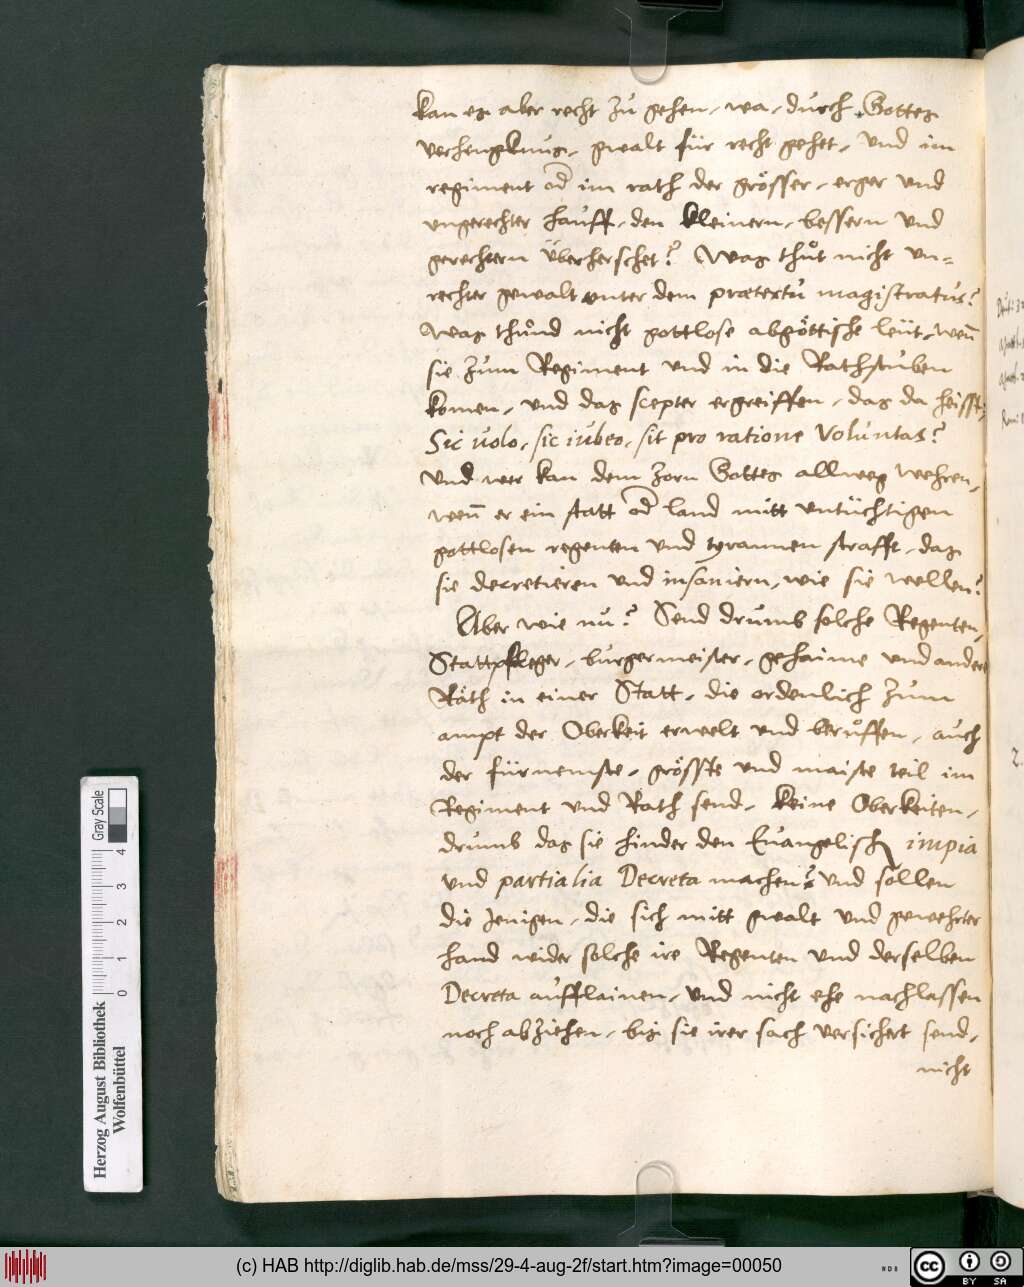 kan es aber recht zů gehen, wa, durch Gottes
verhengknus, gwalt für recht gehet, Und im
regiment od im rath der grösser, erger und
ungerechter hauff, den kleinern, bessern und
gerechtern überherschet? Was thůt nicht un=
rechter gewalt unter dem prætextu magistratus?
Was thůnd nicht gottlose abgöttische leüt, wen̄
sie zum Regiment und in die Rathstuben
komen, und das scepter ergreiffen, das da heisst,
Sic uolo, sic iubeo, sit pro ratione Voluntas?
Und wer kan dem zorn Gottes allweg wehren,
wen̄ er ein statt od land mitt untüchtigen
gottlosen regenten und tyrannen strafft, das
sie decretieren und insaniern, wie sie wellen?
Aber wie nu? Send drumb solche Regenten,
Stattpfleger, burgermeister, gehaime und andere
Räth in einer Statt, die ordenlich zum
ampt der Oberkeit erwelt und berůffen, auch
der fürnemste, grösste und maiste teil im
Regiment und Rath send, keine Oberkeiten,
drumb das sie hinder den Euangelisch impia
und partialia Decreta machen? und sollen
die Jenigen, die sich mitt gwalt und gewehrter
hand wider solche ire Regenten und derselben
Decreta aufflainen, und nicht ehe nachlassen
noch abziehen, bis sie irer sach versichert send,
nicht
2.
Gray Scale
4 3 2 1 0
Herzog August Bibliothek
Wolfenbüttel
(c) HAB http://diglib.hab.de/mss/29-4-aug-2f/start.htm?image=00050
cc BY SA